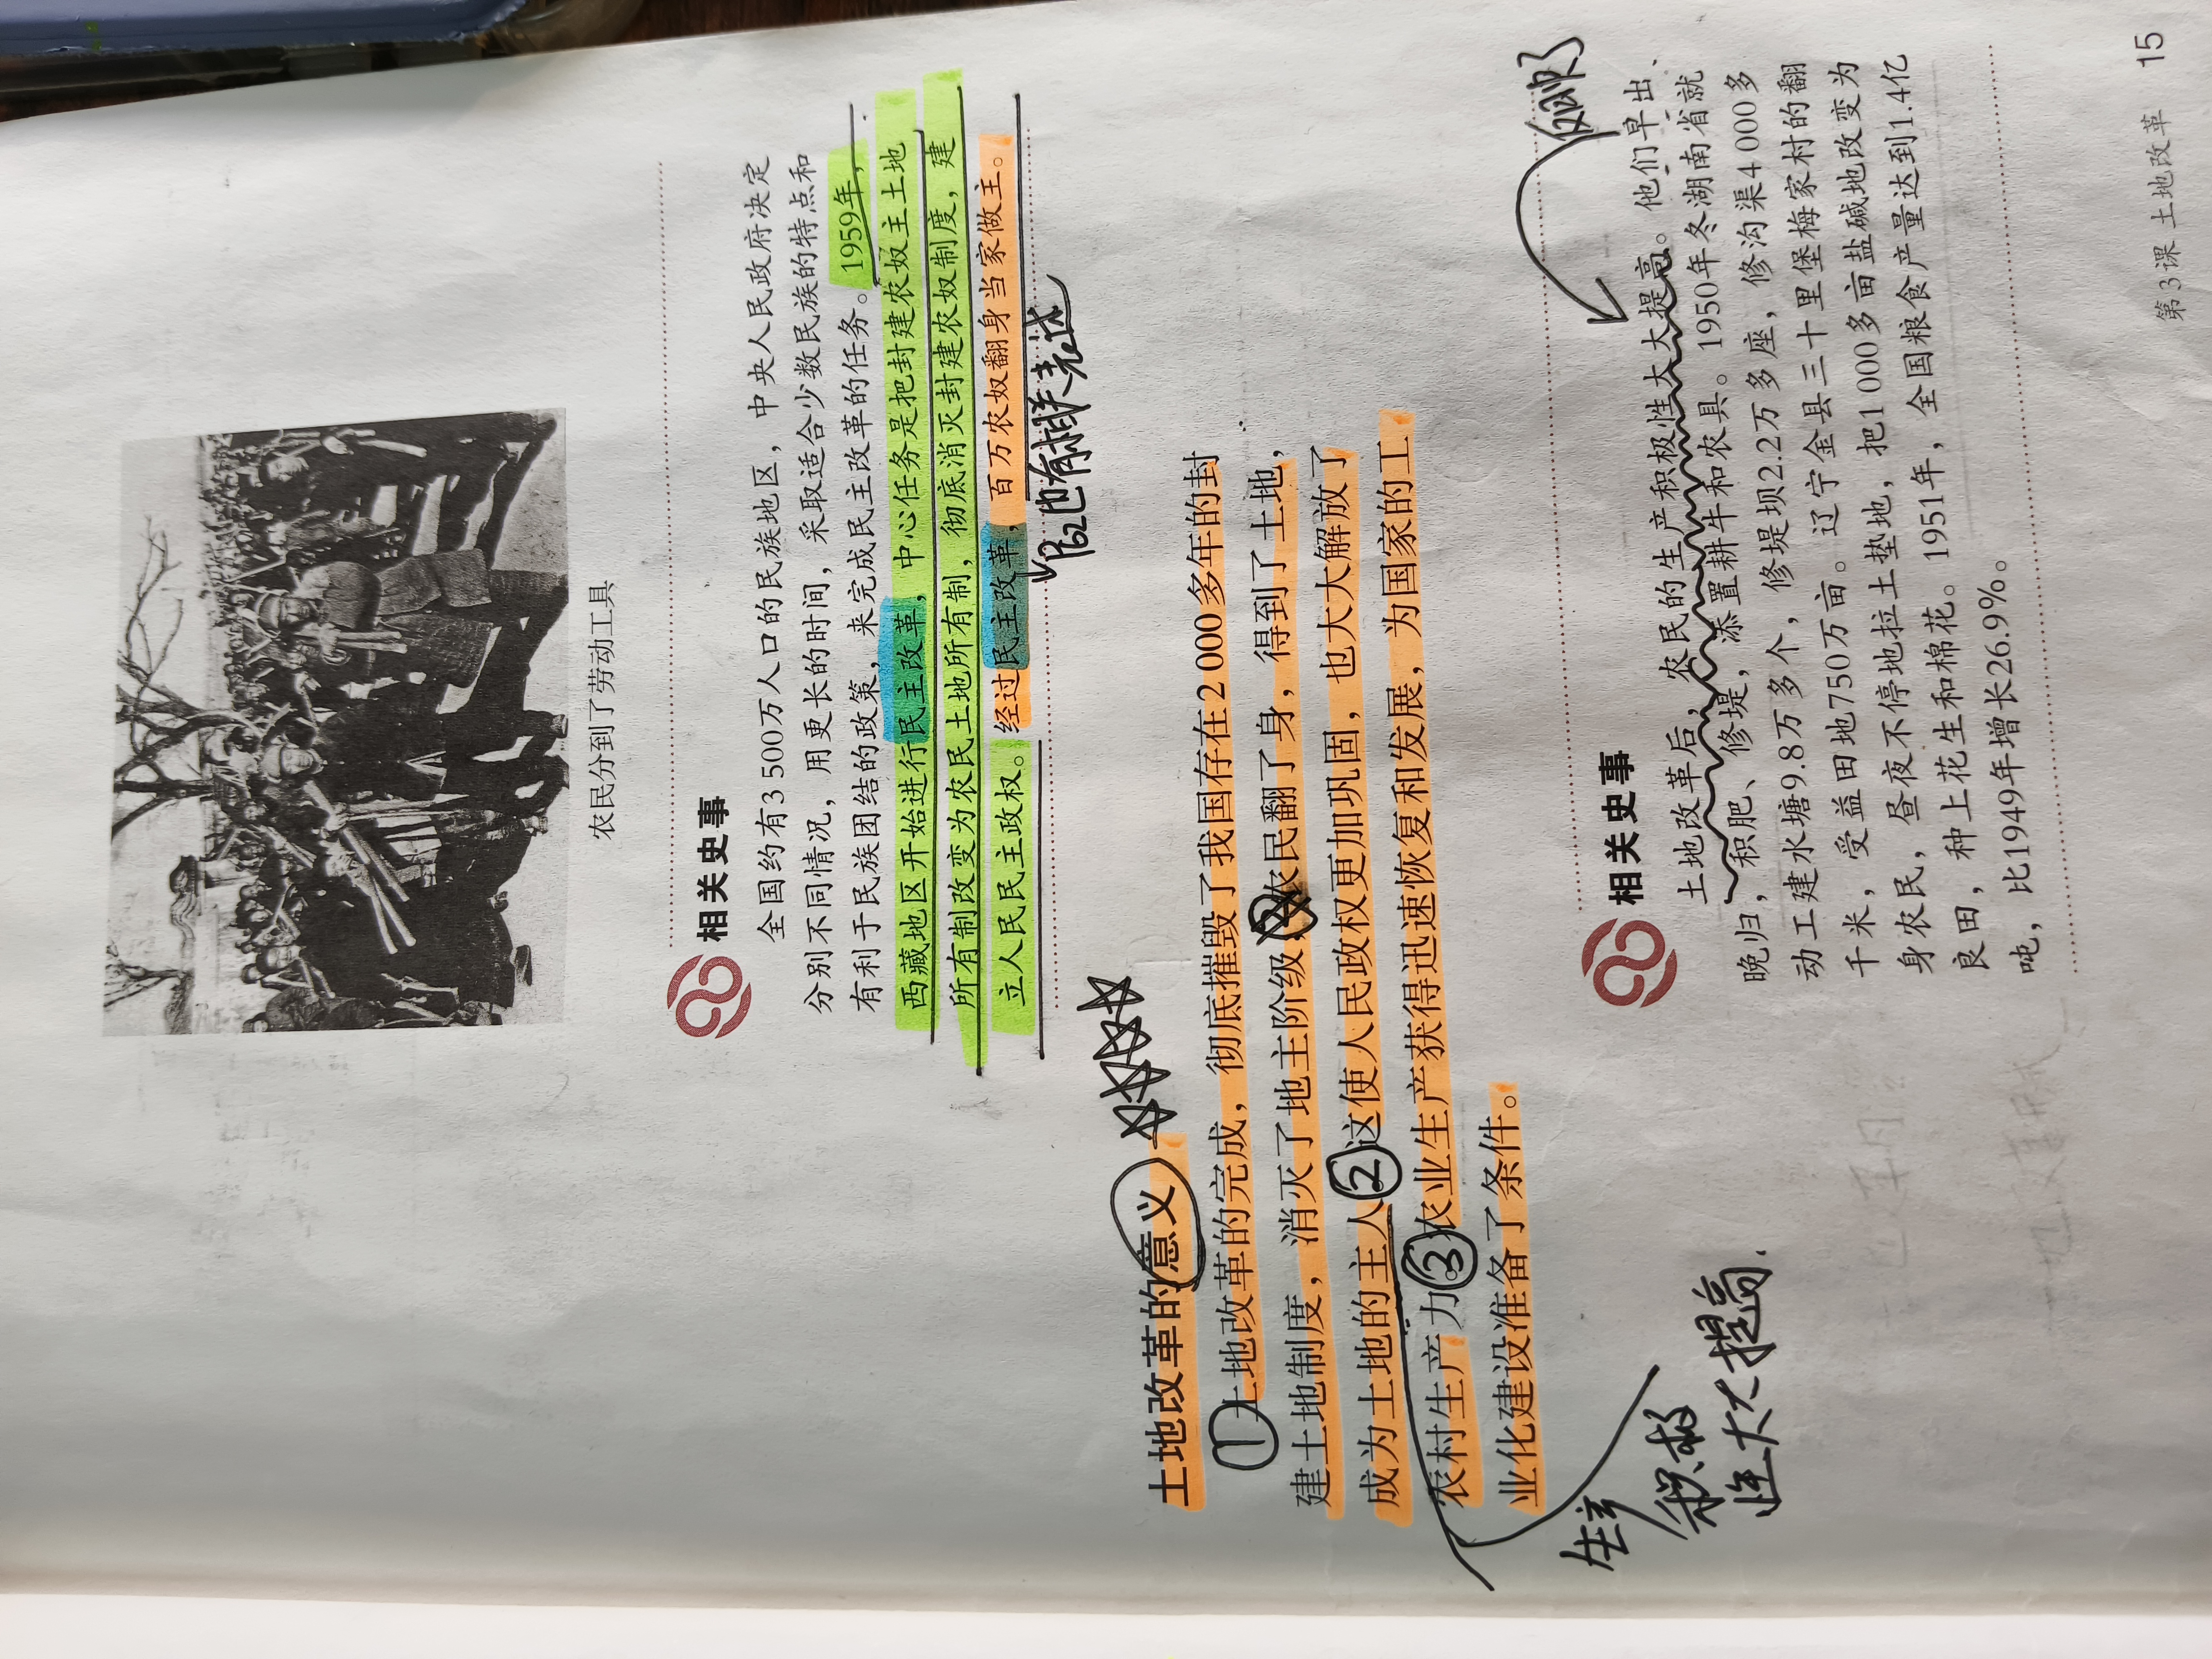 农民分到了劳动工具
相关史事
全国约有3 500万人口的民族地区，中央人民政府决定
分别不同情况，用更长的时间，采取适合少数民族的特点和
有利于民族团结的政策，来完成民主改革的任务。1959年，
西藏地区开始进行民主改革，中心任务是把封建农奴主土地
所有制改变为农民土地所有制，彻底消灭封建农奴制度，建
立人民民主政权。经过民主改革，百万农奴翻身当家做主。
P62也有相关表述
土地改革的意义
①土地改革的完成，彻底摧毁了我国存在2 000多年的封
建土地制度，消灭了地主阶级，农民翻了身，得到了土地，
成为土地的主人②这使人民政权更加巩固，也大大解放了
农村生产力③农业生产获得迅速恢复和发展，为国家的工
业化建设准备了条件。
生产
积极
性大大提高.
相关史事
土地改革后，农民的生产积极性大大提高。他们早出、
晚归，积肥、修堤，添置耕牛和农具。1950年冬湖南省就
动工建水塘9.8万多个，修堤坝2.2万多座，修沟渠4 000多
千米，受益田地750万亩。辽宁金县三十里堡梅家村的翻
身农民，昼夜不停地拉土垫地，把1 000多亩盐碱地改变为
良田，种上花生和棉花。1951年，全国粮食产量达到1.4亿
吨，比1949年增长26.9%。
第3课 土地改革 15